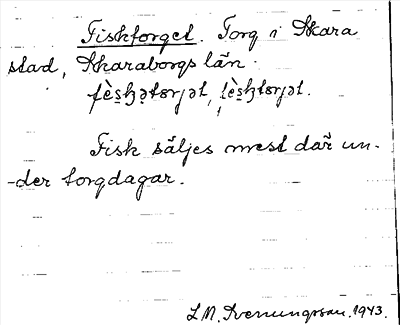 Fisktorget. Torg i Skara
stad, Skaraborgs län.
Fisk säljes mest där un-
-der torgdagar.
L.N. Svenungsson. 1943.